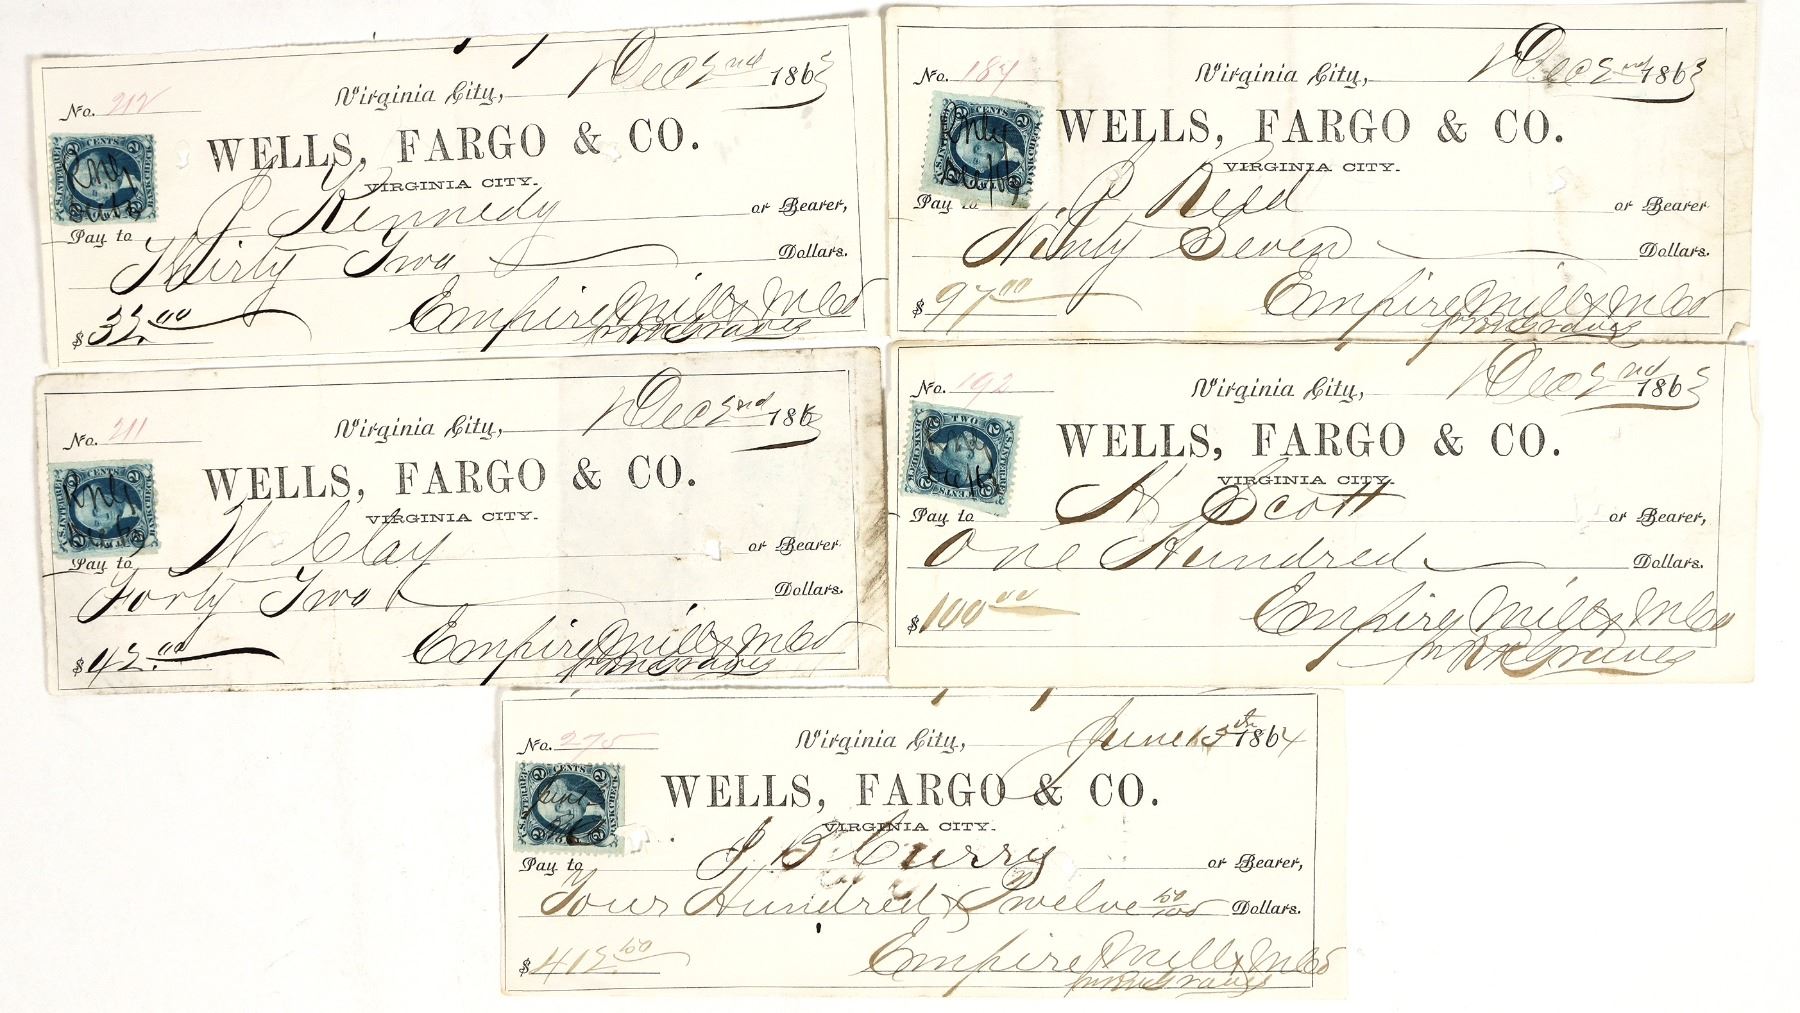 No. 212 Virginia City, Dec 2nd 1863
WELLS, FARGO & CO.
VIRGINIA CITY.
Pay to P Kennedy or Bearer,
Thirty Two Dollars.
$32.00 Empire Mill & M Co
pr R M Graves
No. 184 Virginia City, Dec 2nd 1863
WELLS, FARGO & CO.
VIRGINIA CITY.
Pay to P Reed or Bearer
Ninty Seven Dollars.
$97.00 Empire Mill & M Co
pr R M Graves
No. 211 Virginia City, Dec 2nd 1863
WELLS, FARGO & CO.
VIRGINIA CITY.
Pay to W Clay or Bearer
Forty Two Dollars.
$42.00 Empire Mill & M Co
pr R M Graves
No. 192 Virginia City, Dec 2nd 1863
WELLS, FARGO & CO.
VIRGINIA CITY.
Pay to H Scott or Bearer,
One Hundred Dollars.
$100.00 Empire Mill & M Co
pr R M Graves
No. 275 Virginia City, June 15th 1864
WELLS, FARGO & CO.
VIRGINIA CITY.
Pay to J B Curry or Bearer,
Four Hundred & Twelve 50/100 Dollars.
$412.50 Empire Mill & M Co
pr R M Graves